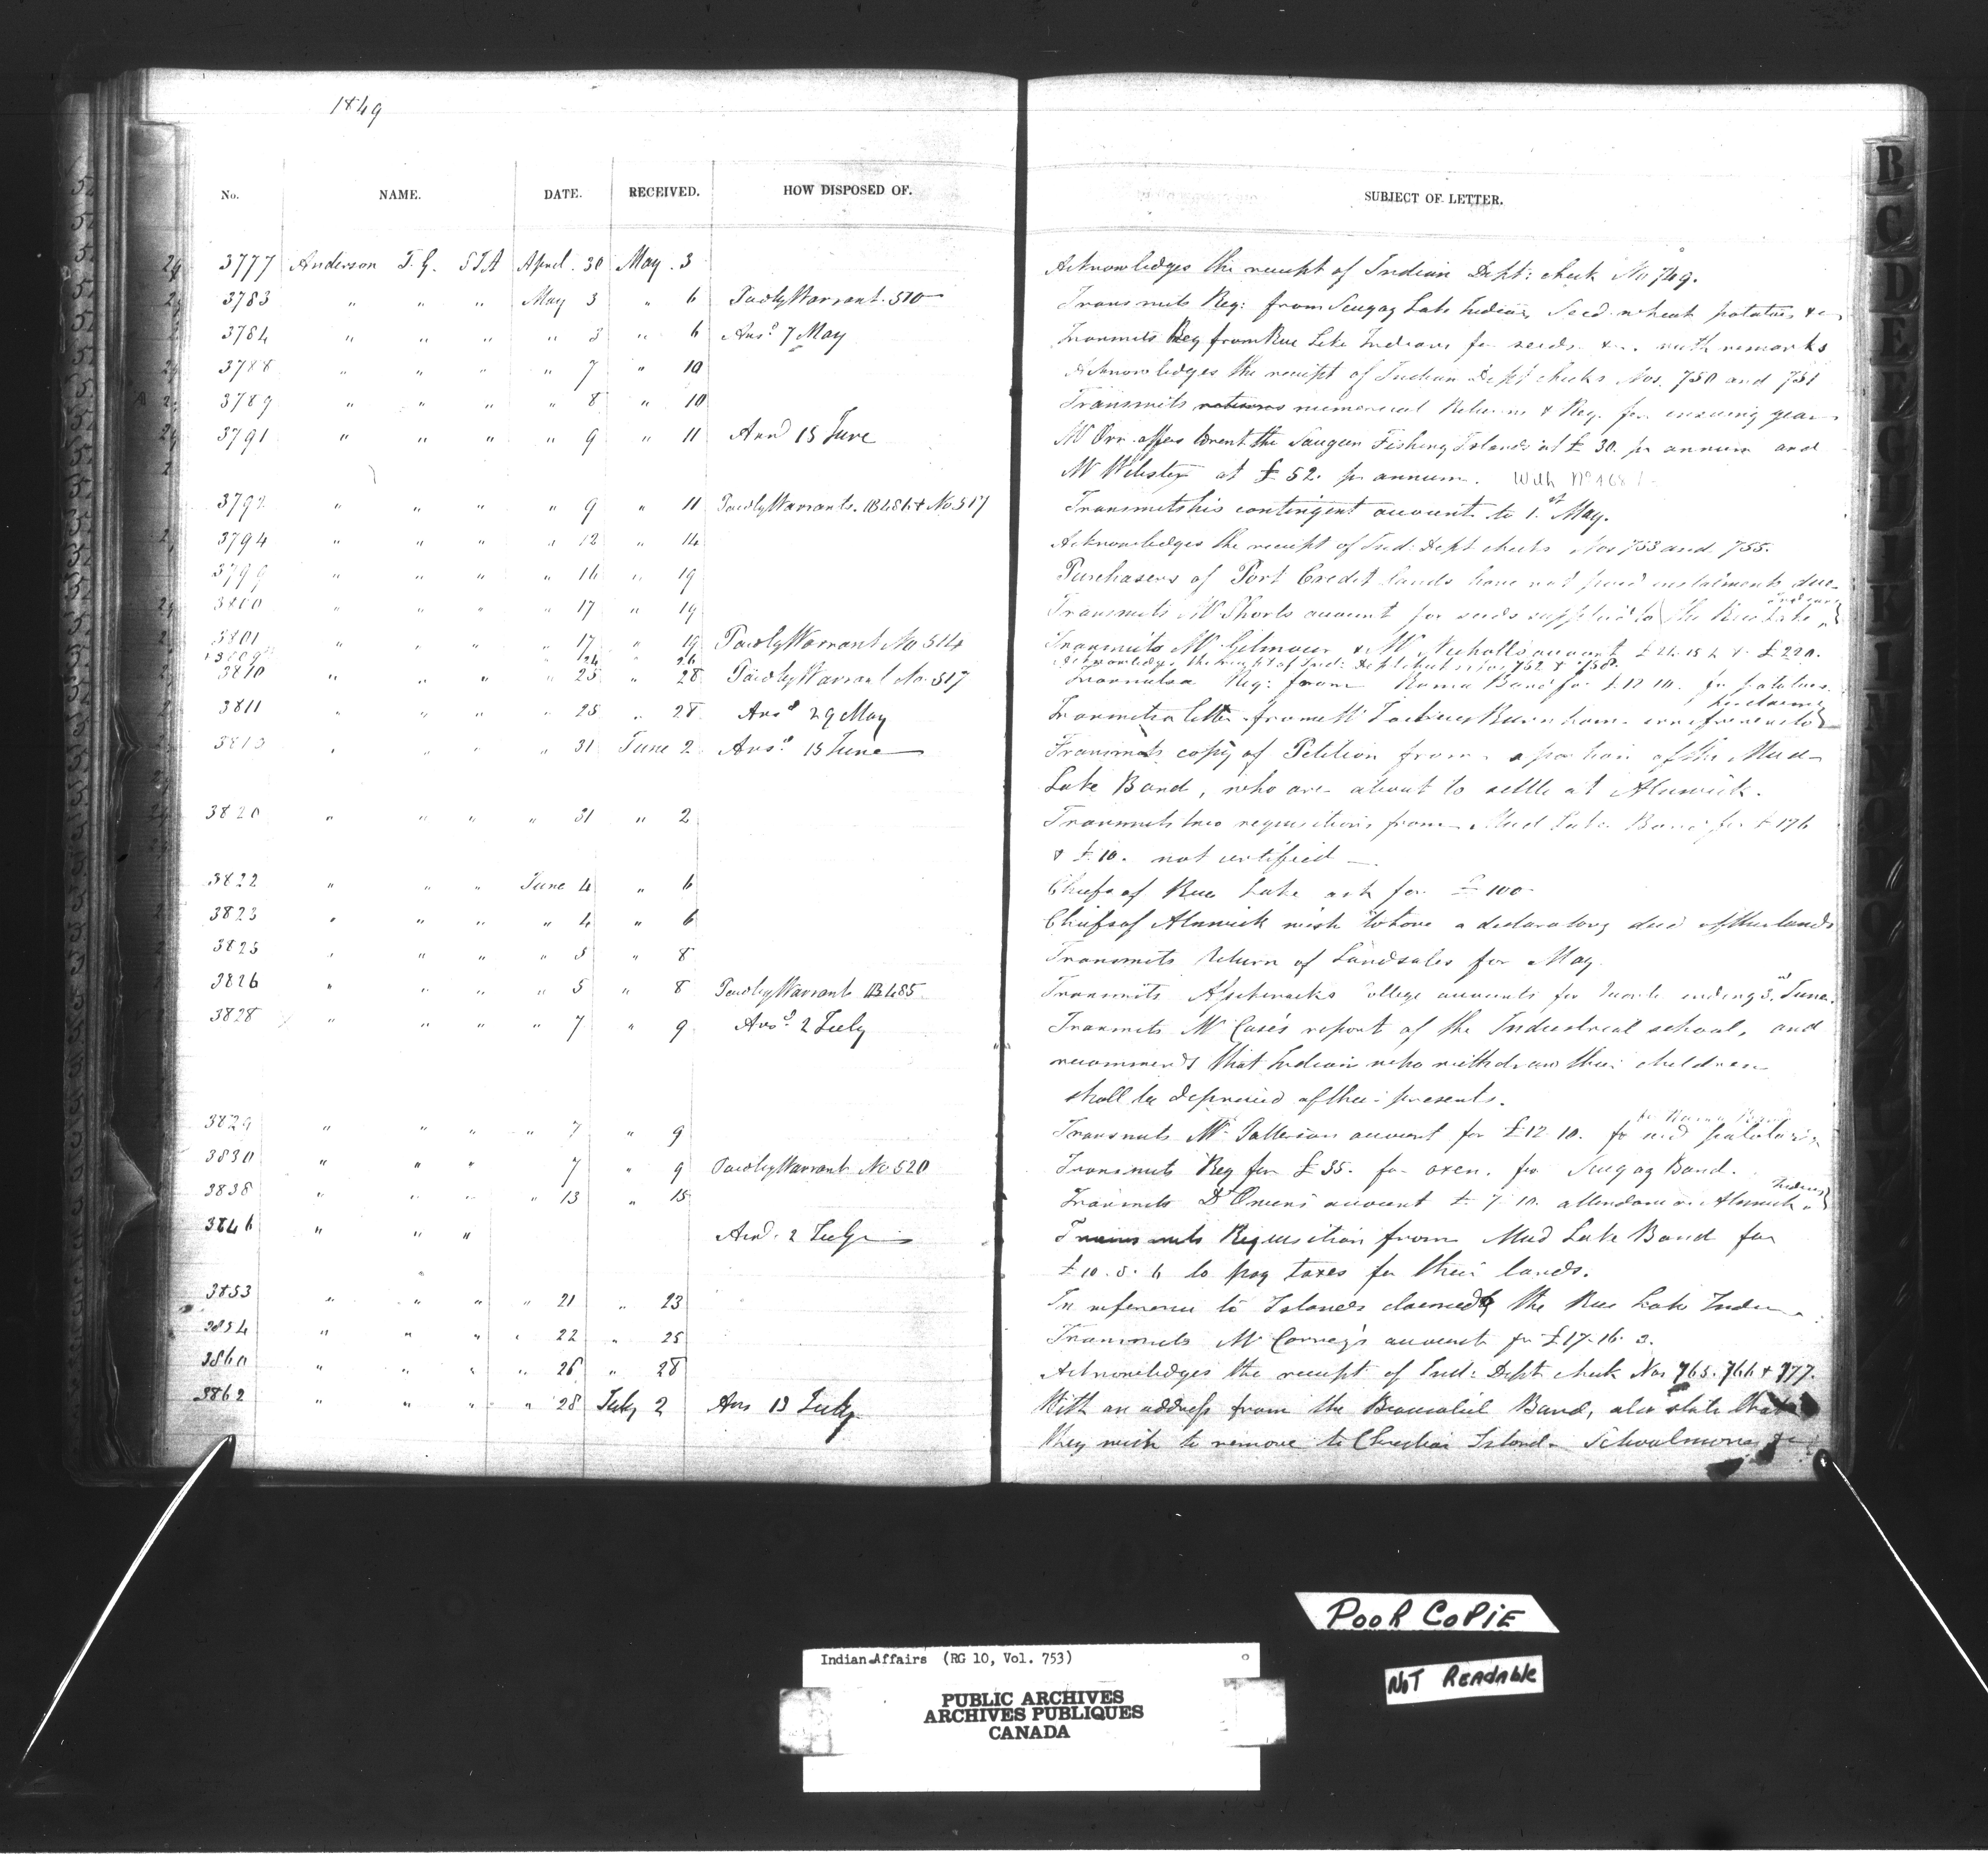 1849
No. NAME. DATE. RECEIVED. HOW DISPOSED OF. SUBJECT OF LETTER.
3777 Anderson T. G. STA April 30 May 3 Acknowledges the receipt of Indian Dept: check No 749.
3783 " " " May 3 " 6 Paid by Warrant 510 Transmits Req: from Scugog Lake Indians Seed wheat potatoes &c
3784 " " " " 3 " 6 Ansd 7 May Transmits Req from Rice Lake Indians for seeds &c. with remarks
3788 " " " " 7 " 10 Acknowledges the receipt of Indian Dept checks Nos. 750 and 751
3789 " " " " 8 " 10 Transmits numerical Returns & Req. for ensuing year
3791 " " " " 9 " 11 Ansd 15 June Mr Orr offers to rent the Saugeen Fishing Islands at £30. pr annum and
Mr Webster at £52. pr annum. With No
3792 " " " " 9 " 11 Paid by Warrants. B486 & No 517 Transmits his contingent account to 1st May.
3794 " " " " 12 " 14 Acknowledges the receipt of Ind: Dept checks Nos 753 and 755.
3799 " " " " 16 " 19 Purchasers of Port Credit lands have not paid instalments due
3800 " " " " 17 " 19 Transmits Mr Shorts account for seeds supplied to the Rice Lake Indians
3801 " " " " 17 " 19 Paid by Warrant No 514 Transmits Mr Gilmour & Mr Nicholls account
3809 " 24 " 26 Acknowledges the receipt of Ind: Dept checks Nos 752 & 758.
3810 " " " " 25 " 28 Paid by Warrant No. 517 Transmits a Req: from Rama Band for £12 10. for potatoes.
3811 " " " " 25 " 28 Ansd 29 May Transmits a letter from Mr Burnham in reference to
3813 " " " " 31 June 2 Ansd 15 June Transmits copy of Petition from a portion of the Mud
Lake Band, who are about to settle at Alnwick.
3820 " " " " 31 " 2 Transmits two requisitions from Mud Lake Band for £176
& £10. not certified
3822 " " " June 4 " 6 Chiefs of Rice Lake ask for £100
3823 " " " " 4 " 6 Chiefs of Alnwick wish to have a declaratory deed of their lands
3825 " " " " 5 " 8 Transmits Return of Land sales for May
3826 " " " " 5 " 8 Paid by Warrant B485 Transmits College accounts for ending 3d June.
3828 " " " " 7 " 9 Ansd 2 July Transmits Mr Case's report of the Industrial school, and
recommends that Indians who withdraw their children
shall be deprived of their presents.
3829 " " " " 7 " 9 Transmits Mr Patterson account for £12 10. for seed potatoes for Rama Band
3830 " " " 7 " 9 Paid by Warrant No 520 Transmits Req for £35. for oxen. for Scugog Band.
3838 " " " " 13 " 15 Transmits Dr account £ 7 10. attendance on Alnwick Indians
3846 " " " Ansd. 2 July Transmits Requisition from Mud Lake Band for
£10. 5. 6 to pay taxes for their lands.
3853 " " " " 21 " 23 In reference to Islands claimed by the Rice Lake Indians
3854 " " " " 22 " 25 Transmits Mr account for £17. 16. 3.
3860 " " " " 26 " 28 Acknowledges the receipt of Ind: Dept check Nos 765. 766 & 777.
3862 " " " " 28 July 2 Ans 13 July With an address from the Beausoliel Band, also state that
they wish to remove to Christian Island.
B
C
D
E
POOR COPiE
NOT READABLE
Indian Affairs (RG 10, Vol. 753)
PUBLIC ARCHIVES
ARCHIVES PUBLIQUES
CANADA